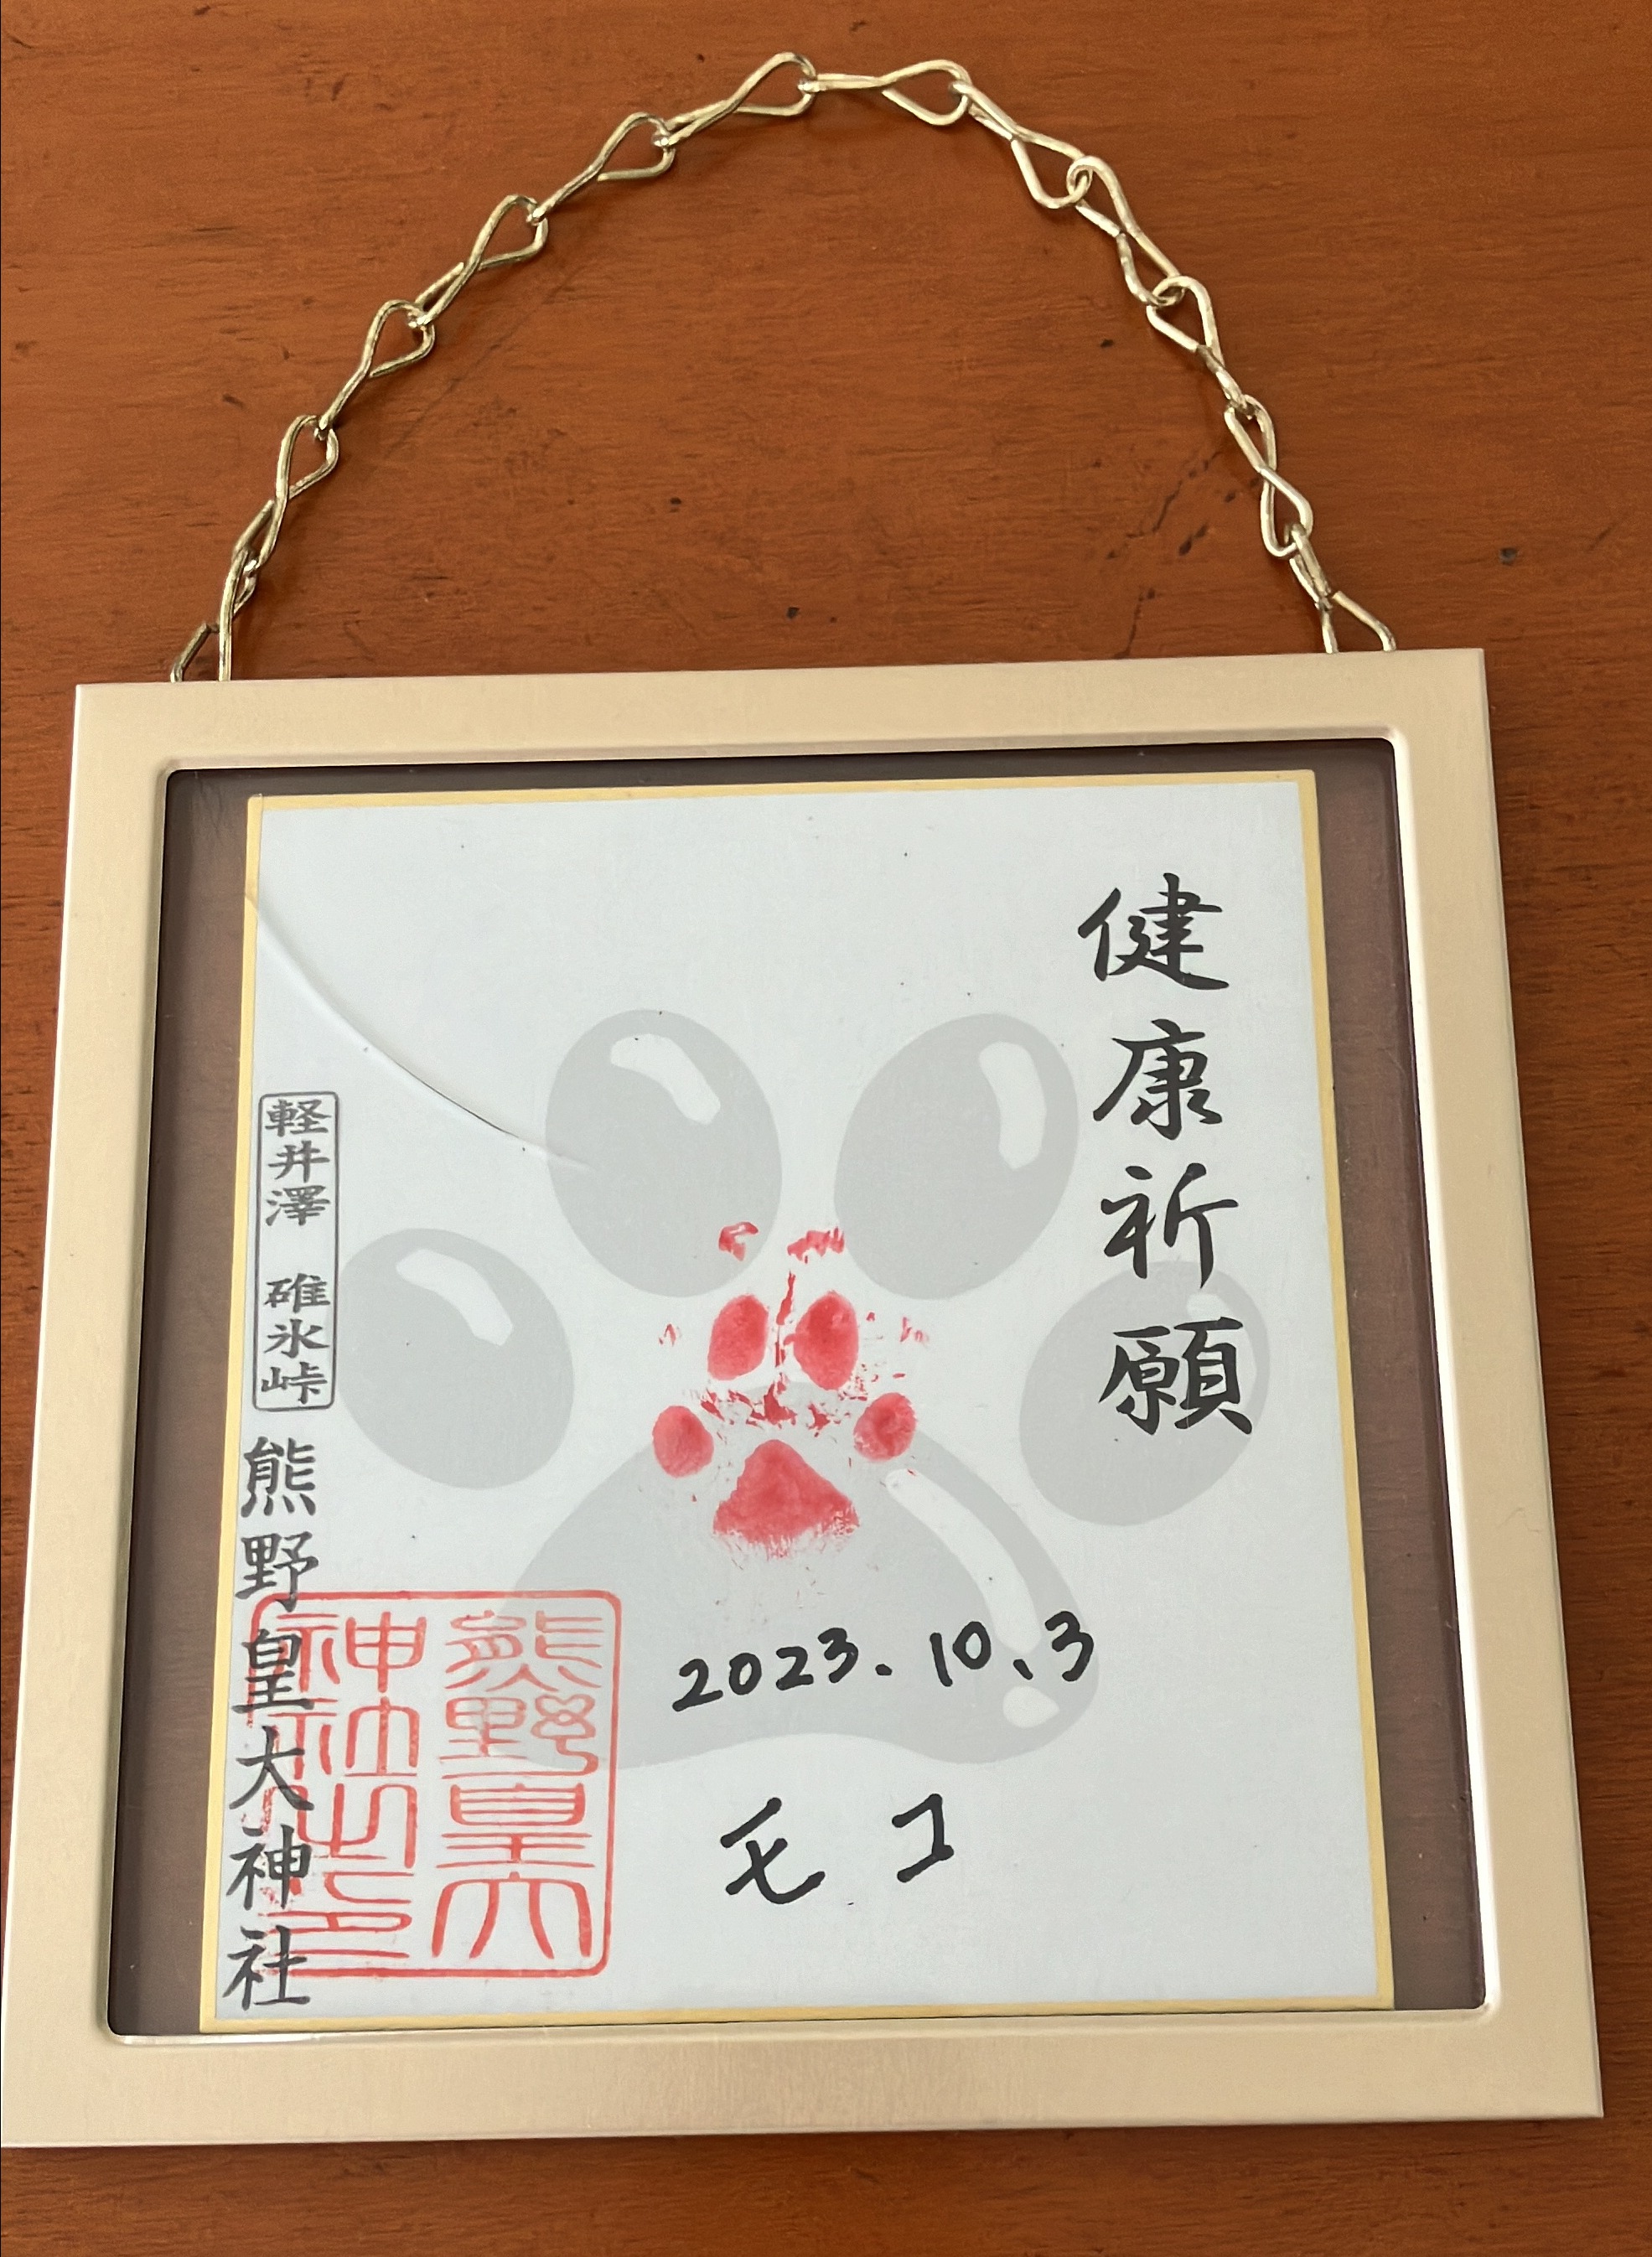 健康祈願
2023.10.3
モコ
軽井澤 碓氷峠
熊野皇大神社
熊野皇大
神社之印